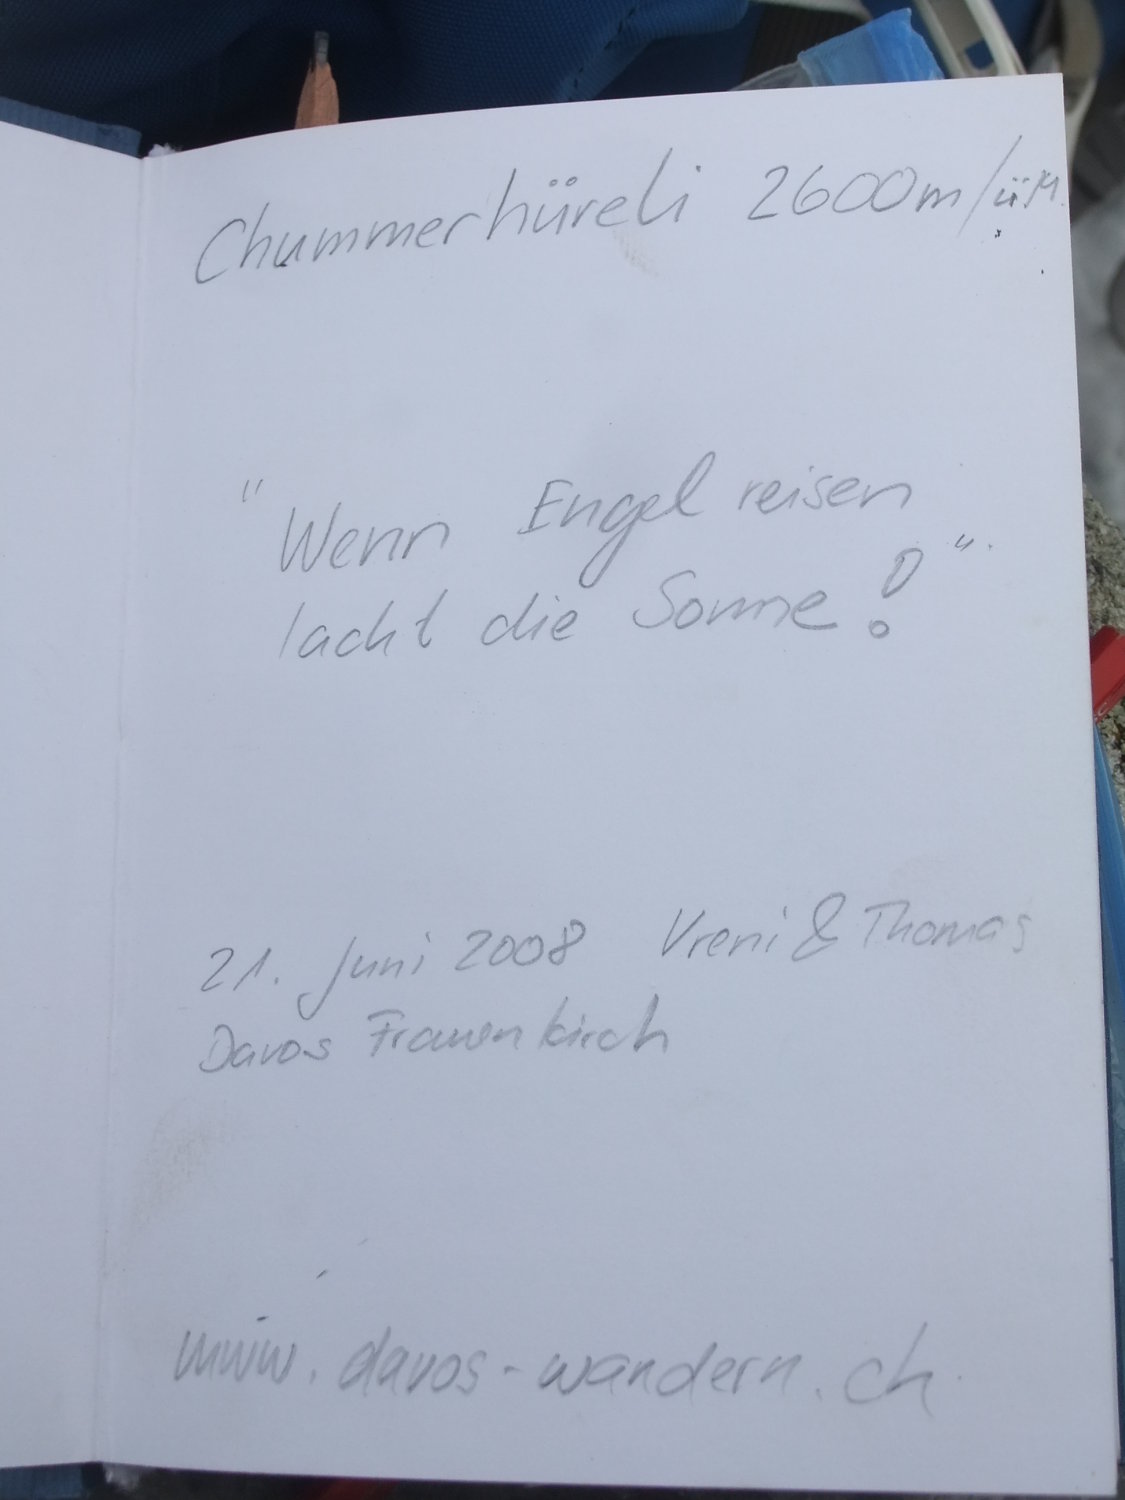 Chummerhüreli 2600m/ü.M.
"Wenn Engel reisen
lacht die Sonne!"
21. Juni 2008 Vreni & Thomas
Davos Frauenkirch
www.davos-wandern.ch